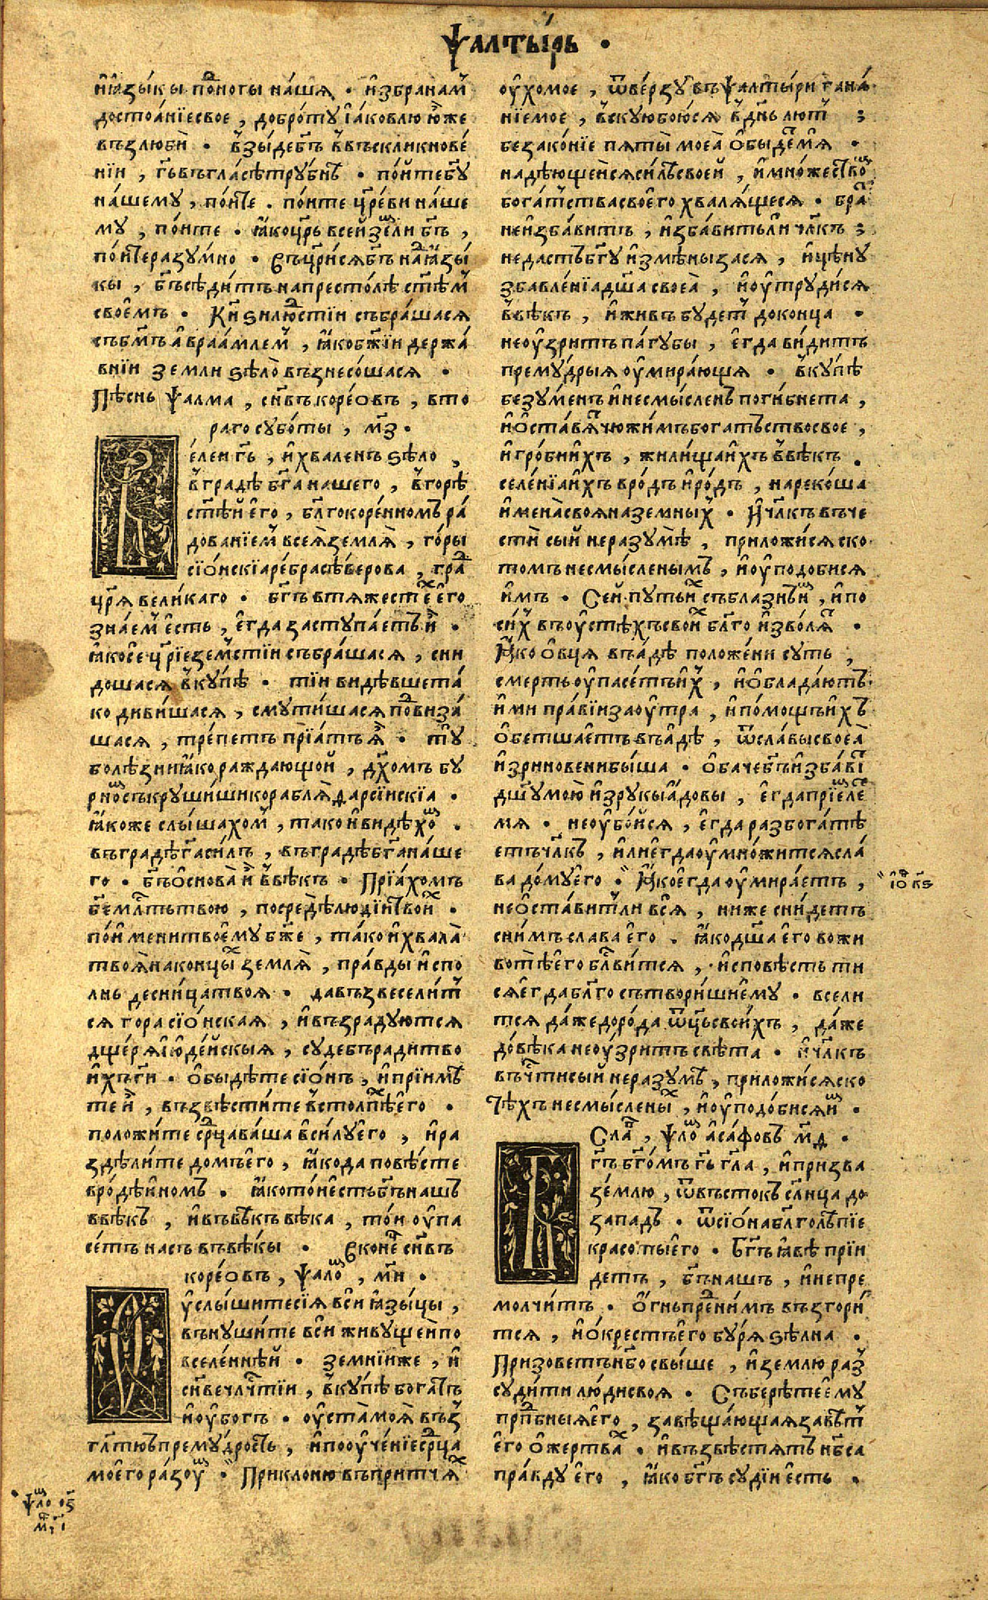 Ѱалты́рь .
и҆ꙗ҆зы́кы по́ⷣногы на́шꙗ . и҆збра на́мъ
достоа́нїе свое , добро́ту і҆а́ковлю ю҆́же
въ злюби̇̀ . взы́де бг҃ъ в въскликнове́
нїи , гь҃ въ гла́сѣ тру́бнѣ . по́ите бг҃у
на́шему , пои́те . поите цр҃еви на́ше
му , пои́те . ꙗ҆́ко цр҃ь всеи̇̀ земли бг҃ъ ,
пои́те разу́мно . въцр҃исѧ бг҃ъ на́дъ ꙗ҆зы́
кы , бг҃ъ сѣди́тъ на престо́лѣ ст҃ѣмъ
свое҆́мъ . Кн҃ѕи лю́дстїи събра́шасѧ
съ бг҃мъ а҆враа́млемъ , ꙗ҆́ко бж҃їи держа́
внїи земли ѕѣло̀ възнесо́шасѧ .
Пѣ́снь ѱалма , сн҃въ коре́ѡвъ , вто
раго субо́ты , м҃з .
е́леи гь҃ , и҆ хва́ленъ ѕѣло ,
въ гра́дѣ бг҃а на́шего , в горѣ
ст҃ѣи е҆го , бл҃гокоре́нномъ ра́
дованїемъ всеѧ̀ землѧ̀ , го́ры
сїо́нскїа ре́бра сѣ́верова , гра́ⷣ
цр҃ѧ вели́каго . бг҃ъ в тѧ́жестеⷯ е҆го
зна́емъ е҆сть , е҆гда заступа́етъ и҆̀ .
ꙗ҆́ко се цр҃їе зе́мстїи събра́шасѧ , сни
до́шасѧ вку́пѣ . тїи ви́дѣвше та́
ко диви́шасѧ , смути́шасѧ поⷣвиза́
шасѧ , тре́петъ прїа́тъ ꙗ҆̀ . ту̀
болѣ́зни ꙗ҆́ко ражда́ющои , дх҃омъ бу́
рноⷨ съкруши́ши корабля̀ ѳарсі́искїа .
ꙗ҆́коже слы́шахомъ , та́ко и ви́дѣхоⷨ .
въ гра́дѣ гⷭ҇а си́лъ , въ гра́дѣ бг҃а на́ше
го . бг҃ъ ѡ҆снова̀ и҆̀ в вѣкъ . Прїа́хомъ
бж҃е млⷭ҇ть твою , посредѣ̀ лю́дїи твои́хъ .
по и҆́мени твоемꙋ бж҃е , та́ко и҆ хвала̀
твоѧ̀ на концы́хъ землѧ̀ , пра́вды и҆спо
лнь десни́ца твоѧ . да възвесели́т
сѧ гора сїо́нская , и҆ възра́дуютсѧ
дще́рѧ і҆юде́йскыѧ , судебъ ра́ди тво
и҆́хъ гⷭ҇и . Обы́дѣте сїо́нъ , и҆ прїимѣ
те и҆̀ , възвѣсти́те в столпѣⷯ е҆го .
положи́те срⷣца ва́ша в си́лу е҆го , и҆ ра
здѣли́те домъ е҆го , ꙗ҆́ко да повѣ́сте
в родѣ̀ и҆номъ . ꙗ҆́ко то́и е҆сть бг҃ъ нашъ
в вѣкъ , и҆ въ вѣ́къ вѣка , то́и оу҆па
се́тъ насъ въ вѣ́кы . В коне́цъ сн҃въ
коре́ѡвъ , ѱалоⷨ , м҃и .
у҆слы́шите сїѧ вси ꙗ҆зы́цы ,
въну́шите вси живу́щеи по
вселе́ннѣи . земні́и же , и҆
сн҃ве чл҃чтїи , вку́пѣ бога́тъ
и҆ оу҆бо́гъ . оу҆ста̀ моѧ̀ въз
гл҃ютъ прему́дрость , и҆ поуче́нїе срⷣца
моего ра́зоуⷨ . Приклоню въ при́тчѧхъ
ѱлоⷨ оз
м҃г і
оу҆́хо мое , ѿве́рзу въ ѱалты́ри гана́
нїе мое , вску́ю бою́сѧ в дн҃ь лютъ ;
безако́нїе пѧты̀ моеа̀ ѡ҆бы́детъ мѧ .
надѣ́ющеисѧ си́лѣ своеи , и҆ мно́жествоⷨ
бога́тства своего хва́лящесѧ . бра́тъ
не и҆зба́витъ , и҆зба́вить ли чл҃къ ;
не да́сть бг҃у и҆змѣ́ны за сѧ , и҆ цѣ́ну
збавле́нїа дш҃а своеа̀ , и҆ оу҆труди́сѧ
в вѣкъ , и҆ живъ бу́детъ до конца .
не оу҆́зритъ па́губы , е҆гда ви́дитъ
прему́дрыѧ оу҆мира́ющѧ . вку́пѣ
безу́менъ и҆ несмы́сленъ поги́бнета ,
и҆ ѡ҆ста́вѧтъ чюжи́мъ бога́тьство свое ,
и҆ гро́би и҆́хъ , жили́ща и҆́хъ в вѣкъ .
селе́нїа и҆́хъ в ро́дъ и҆ ро́дъ , нареко́ша
и҆мена своя на земны́хъ . И҆ чл҃къ въ че
сти̇̀ сыи не разумѣ̀ , приложи́сѧ ско
томъ несмы́сленымъ , и҆ оу҆подо́бисѧ
и҆мъ . Се́и путь и҆́хъ съблазнъ и҆мъ , и҆ по
си́хъ въ оу҆стѣхъ свои́хъ бл҃го и҆зволѧтъ .
Ꙗ҆́ко ѻ҆́вца въ а́дѣ поло́жени суть ,
сме́рть оу҆пасе́тъ и҆хъ , и҆ ѡ҆блада́ютъ
и҆ми пра́вїи заоу́тра , и҆ по́мощь и҆хъ
ѡ҆бетша́етъ въ а́дѣ , ѿ сла́вы своеа̀
и҆зринове́ни бы́ша . ѡ҆ба́че бг҃ъ и҆зба́витъ
дш҃у мою̀ и҆з рукы а́довы , е҆гда прїе́млетъ
мѧ . не оу҆бо́исѧ , е҆гда разбогатѣ́
етъ чл҃къ , и҆ли е҆гда оу҆мно́житсѧ сла́
ва до́му е҆го . Ꙗ҆́ко е҆гда оу҆мира́етъ ,
не ѡ҆ста́витъ ли всѧ̀ , ниже сни́детъ
с нимъ слава е҆го . ꙗ҆́ко дш҃а е҆го в жи
вотѣ̀ е҆го бл҃ви́тсѧ , и҆сповѣ́сть ти
сѧ е҆гда бл҃го сътвори́ши е҆му . всели
тсѧ да́же до ро́да ѿц҃ь свои́хъ , да́же
до́ вѣ́ка не оу҆́зритъ свѣта . и҆ чл҃къ
въ чⷭ҇ти сы́й не разумѣ , приложи́сѧ ско
тѣ́хъ несмы́сленыхъ , и҆ оу҆подо́бисѧ и҆мъ .
Сла́ва , ѱлоⷨ а҆са́фовъ м҃ѳ .
гъ҃ бг҃о́мъ гь҃ гл҃а , и҆ призва
зе́млю , ѿ въсто́къ сл҃нца до
за́падъ . ѿ сїо́на бл҃голѣ́пїе
красоты̀ е҆го . Бг҃ъ ꙗ҆́вѣ прїи
детъ , бг҃ъ нашъ , и҆ не пре
молчи́тъ . ѻ҆́гнь преⷣ нимъ възгори́
тсѧ , и҆ ѡ҆́крестъ е҆го бу́ря ѕѣ́лна .
Призове́тъ нб҃о свы́ше , и҆ зе́млю раз
суди́ти лю́ди своѧ . Съ бере́те е҆му
прпⷣбныѧ е҆го , завѣща́ющаѧ завѣ́тъ
е҆го ѡ҆ же́ртвахъ . и҆ възвѣстѧ́тъ нб҃са
пра́вду е҆го , ꙗ҆́ко бг҃ъ судїи̇̀ е҆сть .
і҆оⷡ к҃з